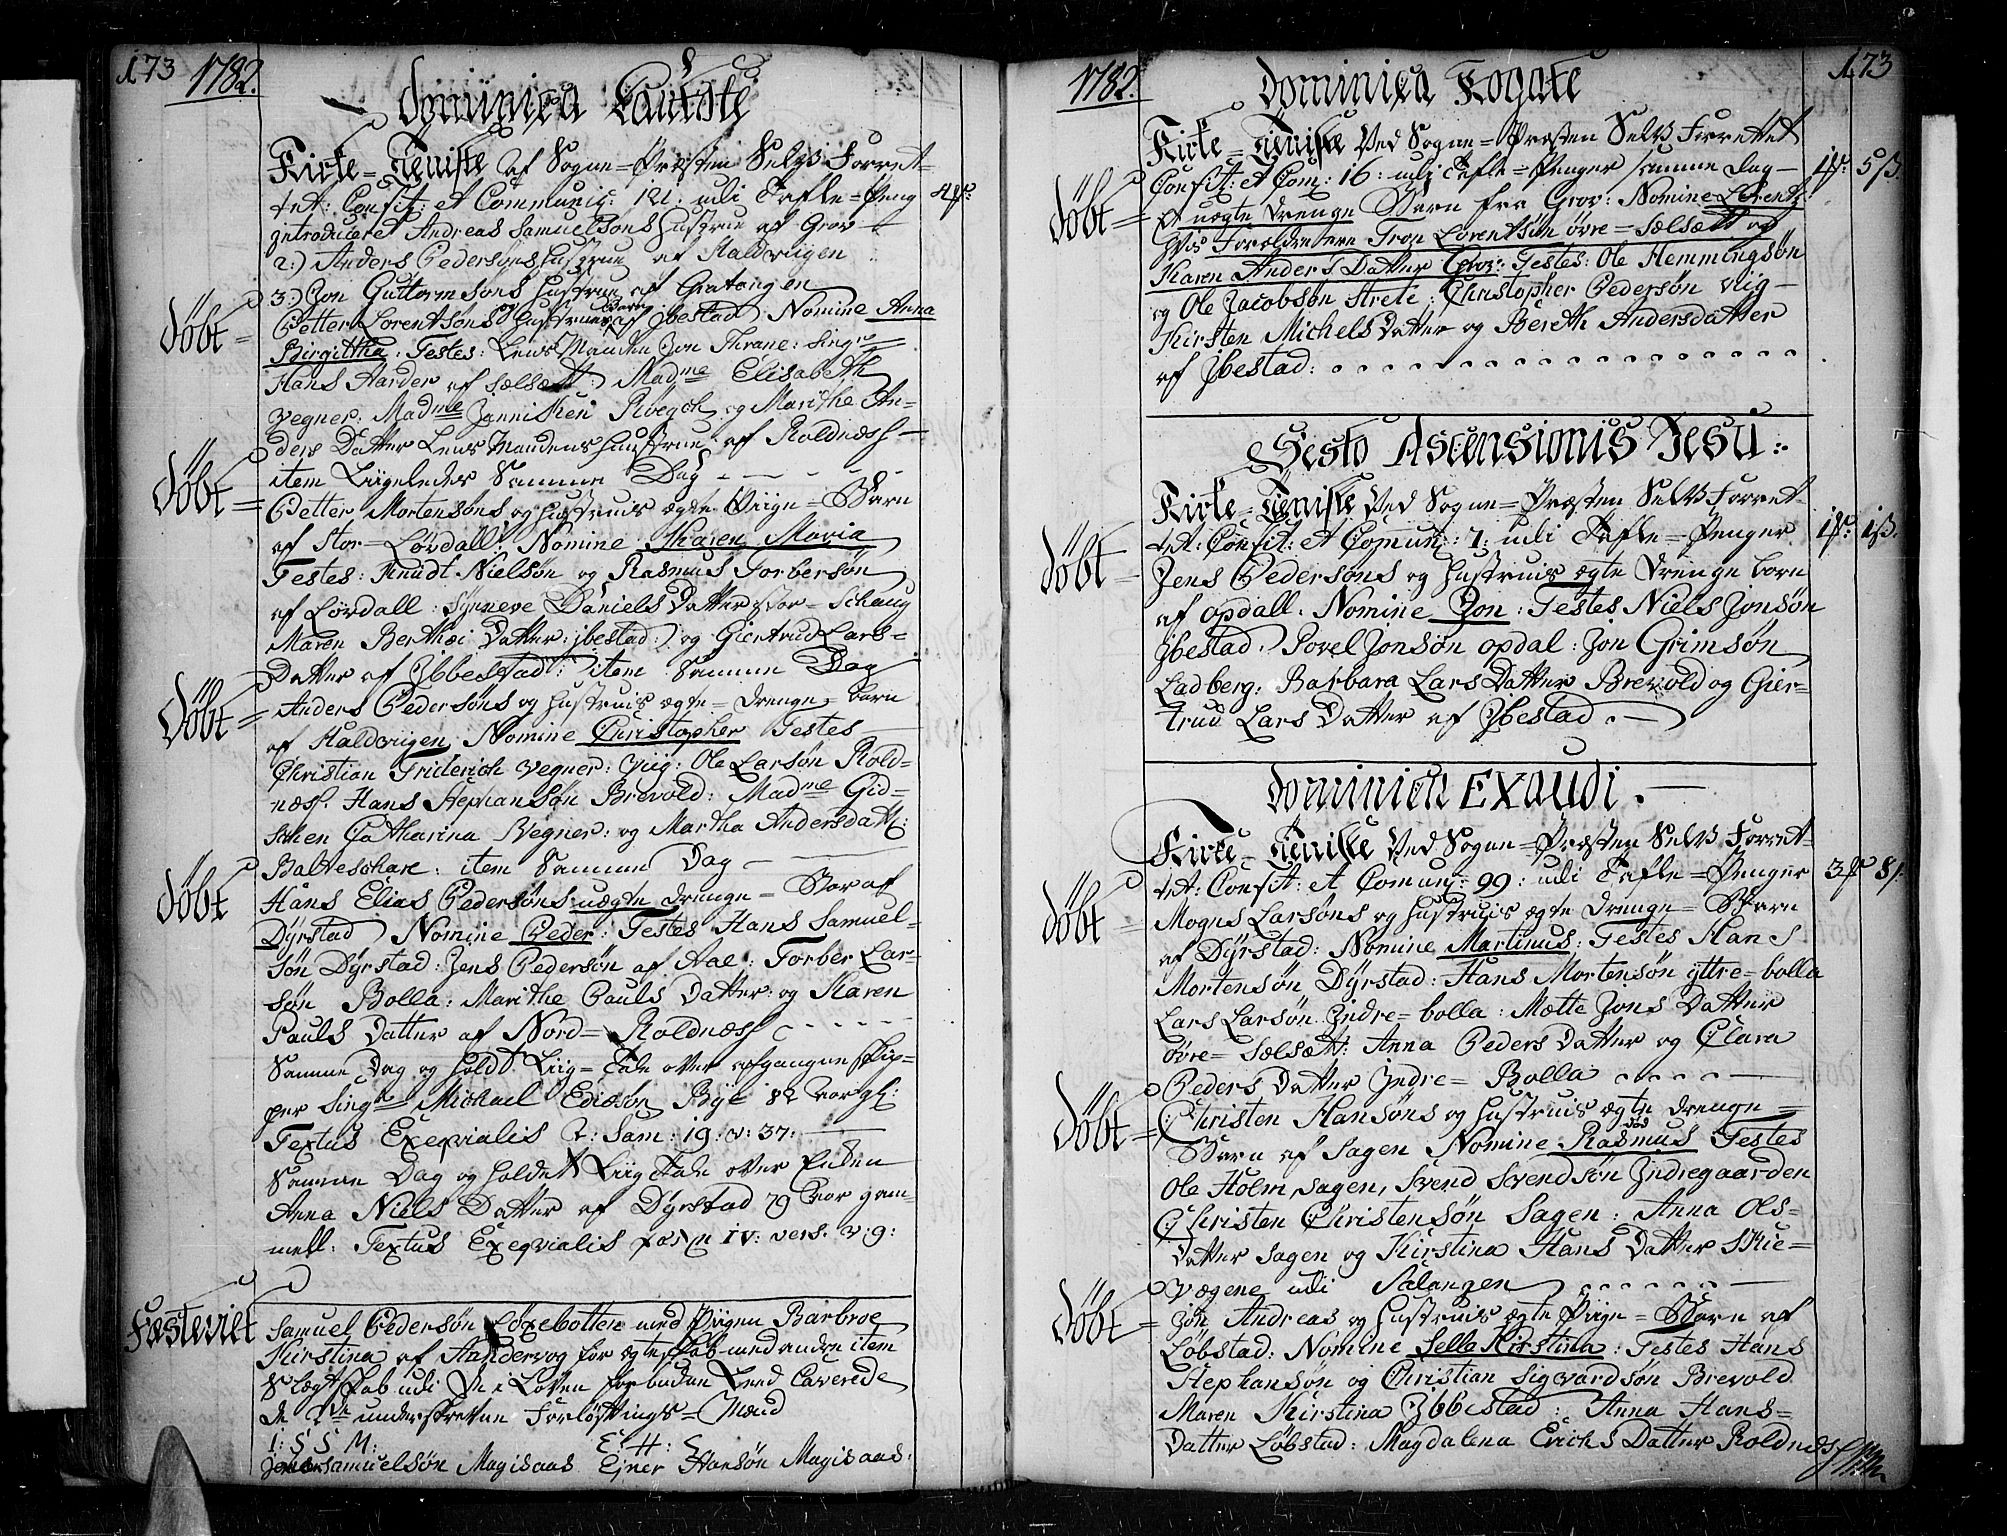 173 1782.
Dominica Cantate
Kirke=Tieniste af Sogne=Præsten Selv Forret=
tet: Confit: et Communiq: 121: udi Tafle=Peng 4
introducere Andreas Samuelsøns Hustrue af Grov
2:) Anders Pedersøns Hustrue af Haldviigen
3:) Jon Guttormsøns Hustrue af Gratangen
døbt = Petter Lorentsøns Hustrues Barn af Jbestad: Nomine Anna
Birgittha: Testes: Lens Manden Jon Thrane: Singr
Hans Harder af Sælsætt: Madme Elisabeth
Vegner: Madme Jannichen og Marithe An=
ders Datter Lens Mandens Hustrue af Roldnæss
item Liigeledes Samme Dag
døbt = Petter Mortensøns og Hustruis ægte Piige=Barn
af Stor=Løvdall: Nomine Karen Maria
Testes: Knudt Nielsøn og Rasmus Torbersøn
af Løvdall: Synneve Daniels Datter Stor=Schaug
Maren Berthæi Datter: jbestad: og Giertrud Lars=
Datter af Jbbestad: item Samme Dag
døbt = Anders Pedersøns og Hustruis ægte=Drenge=barn
af Haldviigen Nomine Christopher Testes
Christian Friderich Vegner: Viig: Ole Larsøn Rold=
næss. Hans Stephansøn Brevold: Madme Gid=
schen Catharina Vegner: og Martha Andersdatt:
Balteschare: item Samme Dag
døbt Hans Elias Pedersøns uægte Drenge=Bar af
Dyrstad Nomine Peder: Testes Hans Samuel=
søn Dyrstad: Jens Pedersøn af Aae: Torber Lar=
søn Bolla: Marithe Pauls Datter: og Karen
Pauls Datter af Nord=Roldnæss
Samme Dag og holdt Liig=Tale over afgangne Skip=
per Singr Michael Ericksøn Bye 82 Aar gl:
Textus Exeqvialis 2: Sam: 19: v: 37:
Samme Dag og holdet Liig Tale over Enken
Anna Niels Datter af Dyrstad 79 Aar gam=
mell: Textus Exeqvialis IV: vers. v: 9:
Fæstevilt Samuel Pedersøn Løxebotten med Piigen Barbroe
Kirstina af Aandervog for ægteskab med andre item
Slægtskab udi De i Loven forbuden Leed Caverede
de 2de underskrevne Forløftnings=Mænd
I: S S M: E: H: S
Samuelsøn Magisaas Ejner Hansøn Magisaas:
1782. 173
Dominica Rogate
Kirke=Tieniste Ved Sogne=Præsten Selv Forrettet
Confit: et Com: 16: udi Tafle=Penger samme Dag 1 5 ß.
døbt = et uægte Drenge Barn fra Grov: Nomine Lorentz
hvis Forældre ere Tron Lorentsøn øvre=Sælsætt og
Karen Anders Datter Grov: Testes: Ole Hemmingsøn
og Ole Jacobsøn Strete: Christopher Pedersøn Viig
Kirsten Michels Datter og Bereth Andersdatter
af Jbestad:
Festo Ascensionis Jesu:
Kirke=Tieniste Ved Sogne=Præsten Selv Forret=
tet: Confit: et Comun: 7: udi Tafle=Penger 1 1 ß.
døbt = Jens Pedersøns og Hustruis ægte Drenge barn
af opdall. Nomine Jon: Testes Niels Jonsøn
Jbestad. Povel Jonsøn opdal: Jon Grimsøn
Ladberg: Barbara Lars Datter Brevold og Gier=
trud Lars Datter af Jbestad.
Dominica Exaudi.
Kirke=Tieniste Ved Sogne=Præsten Selv Forret=
tet: Confit: et Comun: 99: udi Tafle=Penger 3 8
døbt = Mogns Larsøns og Hustruis ægte Drenge=Barn
af Dyrstad: Nomine Martinus: Testes Hans
Mortensøn Dyrstad: Hans Mortensøn yttre=bolla
Lars Larsøn Jndre=bolla: Mætte Jons Datter
øvre=Sælsætt: Anna Peders Datter og Clara
Peders Datter Jndre=Bolla
døbt = Christen Hansøns og Hustruis ægte Drenge=
Barn af Sagen Nomine Rasmus Testes
Ole Holm Sagen, Svend Svendsøn Jndregaarden
Christen Christensøn Sagen: Anna Ols=
Datter Sagen og Kirstina Hans Datter Skie=
vægene udi Salangen
døbt = Jon Andreas og Hustruis ægte Piige=Barn af
Løbstad: Nomine Selle Kirstina: Testes Hans
Stephansøn og Christian Sigvardsøn Brevold
Maren Kirstina Jbbestad: Anna Hans=
Datter Løbstad: Magdalena Erichs Datter Roldnæs